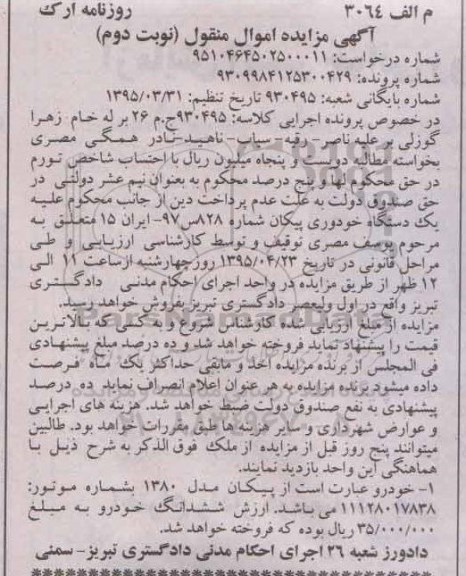 م الف ۳۰۶۴ روزنامه ارک
آگهی مزایده اموال منقول (نوبت دوم)
شماره درخواست: ۹۵۱۰۴۶۴۵۰۲۵۰۰۰۱۱
شماره پرونده: ۹۳۰۹۹۸۴۱۲۵۳۰۰۴۲۹
شماره بایگانی شعبه: ۹۳۰۴۹۵ تاریخ تنظیم: ۱۳۹۵/۰۳/۳۱
در خصوص پرونده اجرایی کلاسه: ۹۳۰۴۹۵ج.م ۲۶ بر له خانم زهرا
گوزلی بر علیه ناصر- رقیه- سیاب- ناهید- نادر همگی مصری
بخواسته مطالبه دویست و پنجاه میلیون ریال با احتساب شاخص تورم
در حق محکوم لها و پنج درصد محکوم به بعنوان نیم عشر دولتی در
حق صندوق دولت به علت عدم پرداخت دین از جانب محکوم علیه
یک دستگاه خودروی پیکان شماره ۸۲۸س۹۷- ایران ۱۵ متعلق به
مرحوم یوسف مصری توقیف و توسط کارشناسی ارزیابی و طی
مراحل قانونی در تاریخ ۱۳۹۵/۰۴/۲۳ روز چهارشنبه از ساعت ۱۱ الی
۱۲ ظهر از طریق مزایده در واحد اجرای احکام مدنی دادگستری
تبریز واقع در اول ولیعصر دادگستری تبریز بفروش خواهد رسید.
مزایده از مبلغ ارزیابی شده کارشناس شروع و به کسی که بالاترین
قیمت را پیشنهاد نماید فروخته خواهد شد و ده درصد مبلغ پیشنهادی
فی المجلس از برنده مزایده اخذ و مابقی حداکثر یک ماه فرصت
داده میشود برنده مزایده به هر عنوان اعلام انصراف نماید ده درصد
پیشنهادی به نفع صندوق دولت ضبط خواهد شد. هزینه های اجرایی
و عوارض شهرداری و سایر هزینه ها طبق مقررات خواهد بود. طالبین
میتوانند پنج روز قبل از مزایده از ملک فوق الذکر به شرح ذیل با
هماهنگی این واحد بازدید نمایند.
۱- خودرو عبارت است از پیکان مدل ۱۳۸۰ بشماره موتور:
۱۱۱۲۸۰۱۷۸۳۸ می باشد. ارزش ششدانگ خودرو به مبلغ
۳۵/۰۰۰/۰۰۰ ریال بوده که فروخته خواهد شد.
دادورز شعبه ۲۶ اجرای احکام مدنی دادگستری تبریز- سمنی